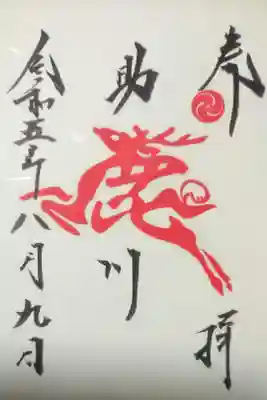 奉拝
助鹿川
令和五年八月九日